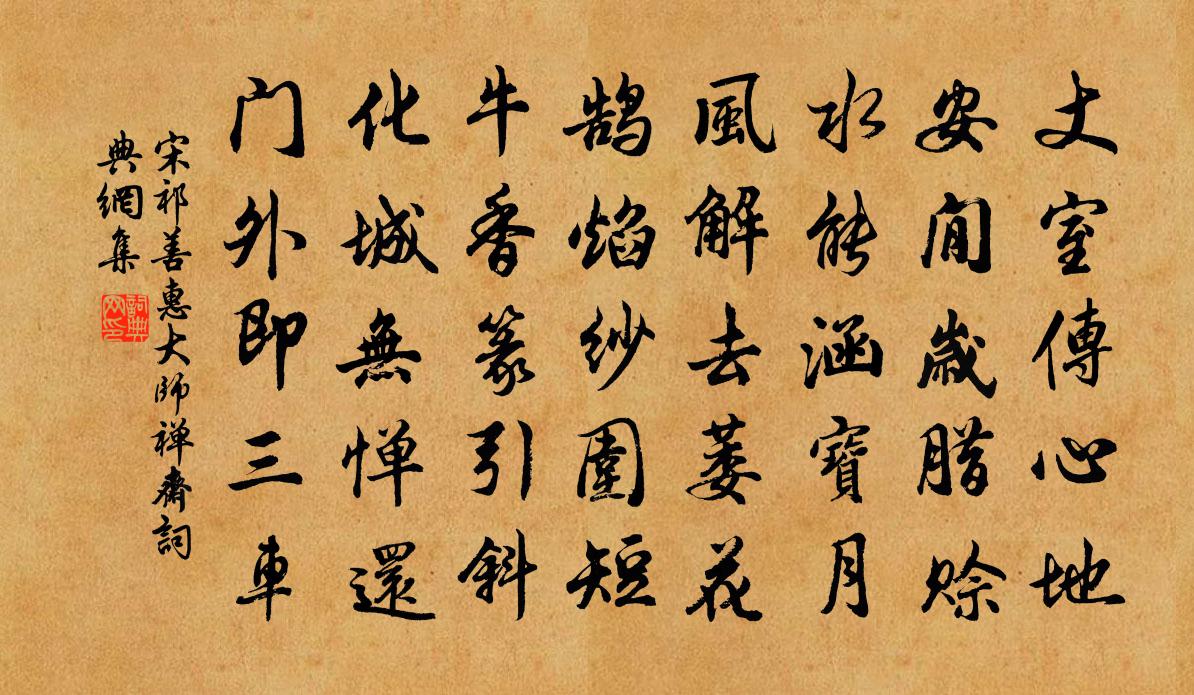 丈室傳心地
安閒歲腊赊
水能涵寶月
風解去萎花
鵠焰纱圍短
牛香篆引斜
化城無憚還
门外即三車
宋祁善惠大師禅齋詞
典網集
詞典网印